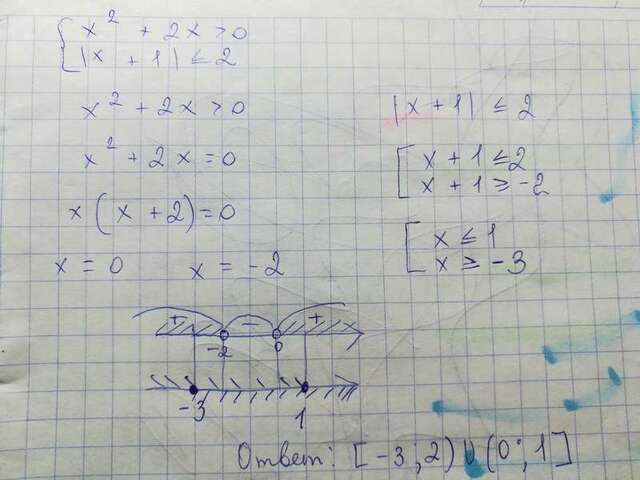 { x² + 2x > 0
|x + 1| ≤ 2
x² + 2x > 0
x² + 2x = 0
x(x + 2) = 0
x = 0 x = -2
|x + 1| ≤ 2
[ x + 1 ≤ 2
x + 1 ≥ -2
[ x ≤ 1
x ≥ -3
+ - + x
-2 0
-3 1
Ответ: [-3; 2) ∪ (0; 1]